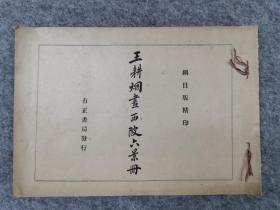 細目版精印
王耕烟畫西陂六景冊
有正書局發行